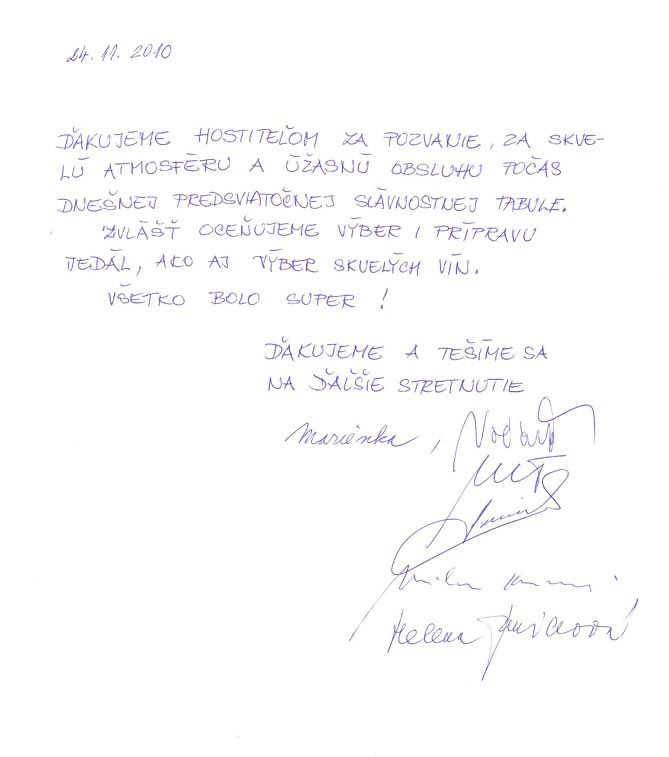 24. 11. 2010
ĎAKUJEME HOSTITEĽOM ZA POZVANIE, ZA SKVE-
LÚ ATMOSFÉRU A ÚŽASNÚ OBSLUHU POČAS
DNEŠNEJ PREDSVIATOČNEJ SLÁVNOSTNEJ TABULE.
ZVLÁŠŤ OCEŇUJEME VÝBER I PRÍPRAVU
JEDÁL, AKO AJ VÝBER SKVELÝCH VÍN.
VŠETKO BOLO SUPER !
ĎAKUJEME A TEŠÍME SA
NA ĎALŠIE STRETNUTIE
Marienka,
Helena